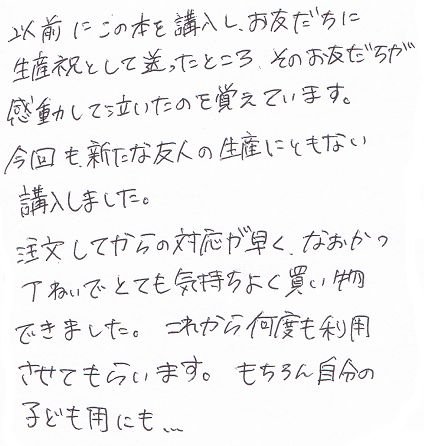 以前にこの本を講入し、お友だちに
生産祝として送ったところ、そのお友だちが
感動して泣いたのを覚えています。
今回も、新たな友人の生産にともない
講入しました。
注文してからの対応が早く、なおかつ
丁ねいでとても気持ちよく買い物
できました。これから何度も利用
させてもらいます。もちろん自分の
子ども用にも…